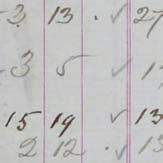 3 13 . ✓ 27
3 5 ✓
15 19 ✓ 13
2 12 . ✓ 13